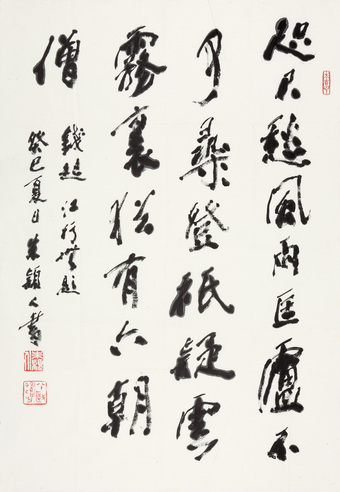 咫尺愁風雨匡廬不
可攀登祇疑雲
霧裏猶有六朝
僧
錢起江行無題
癸巳夏日朱穎人書